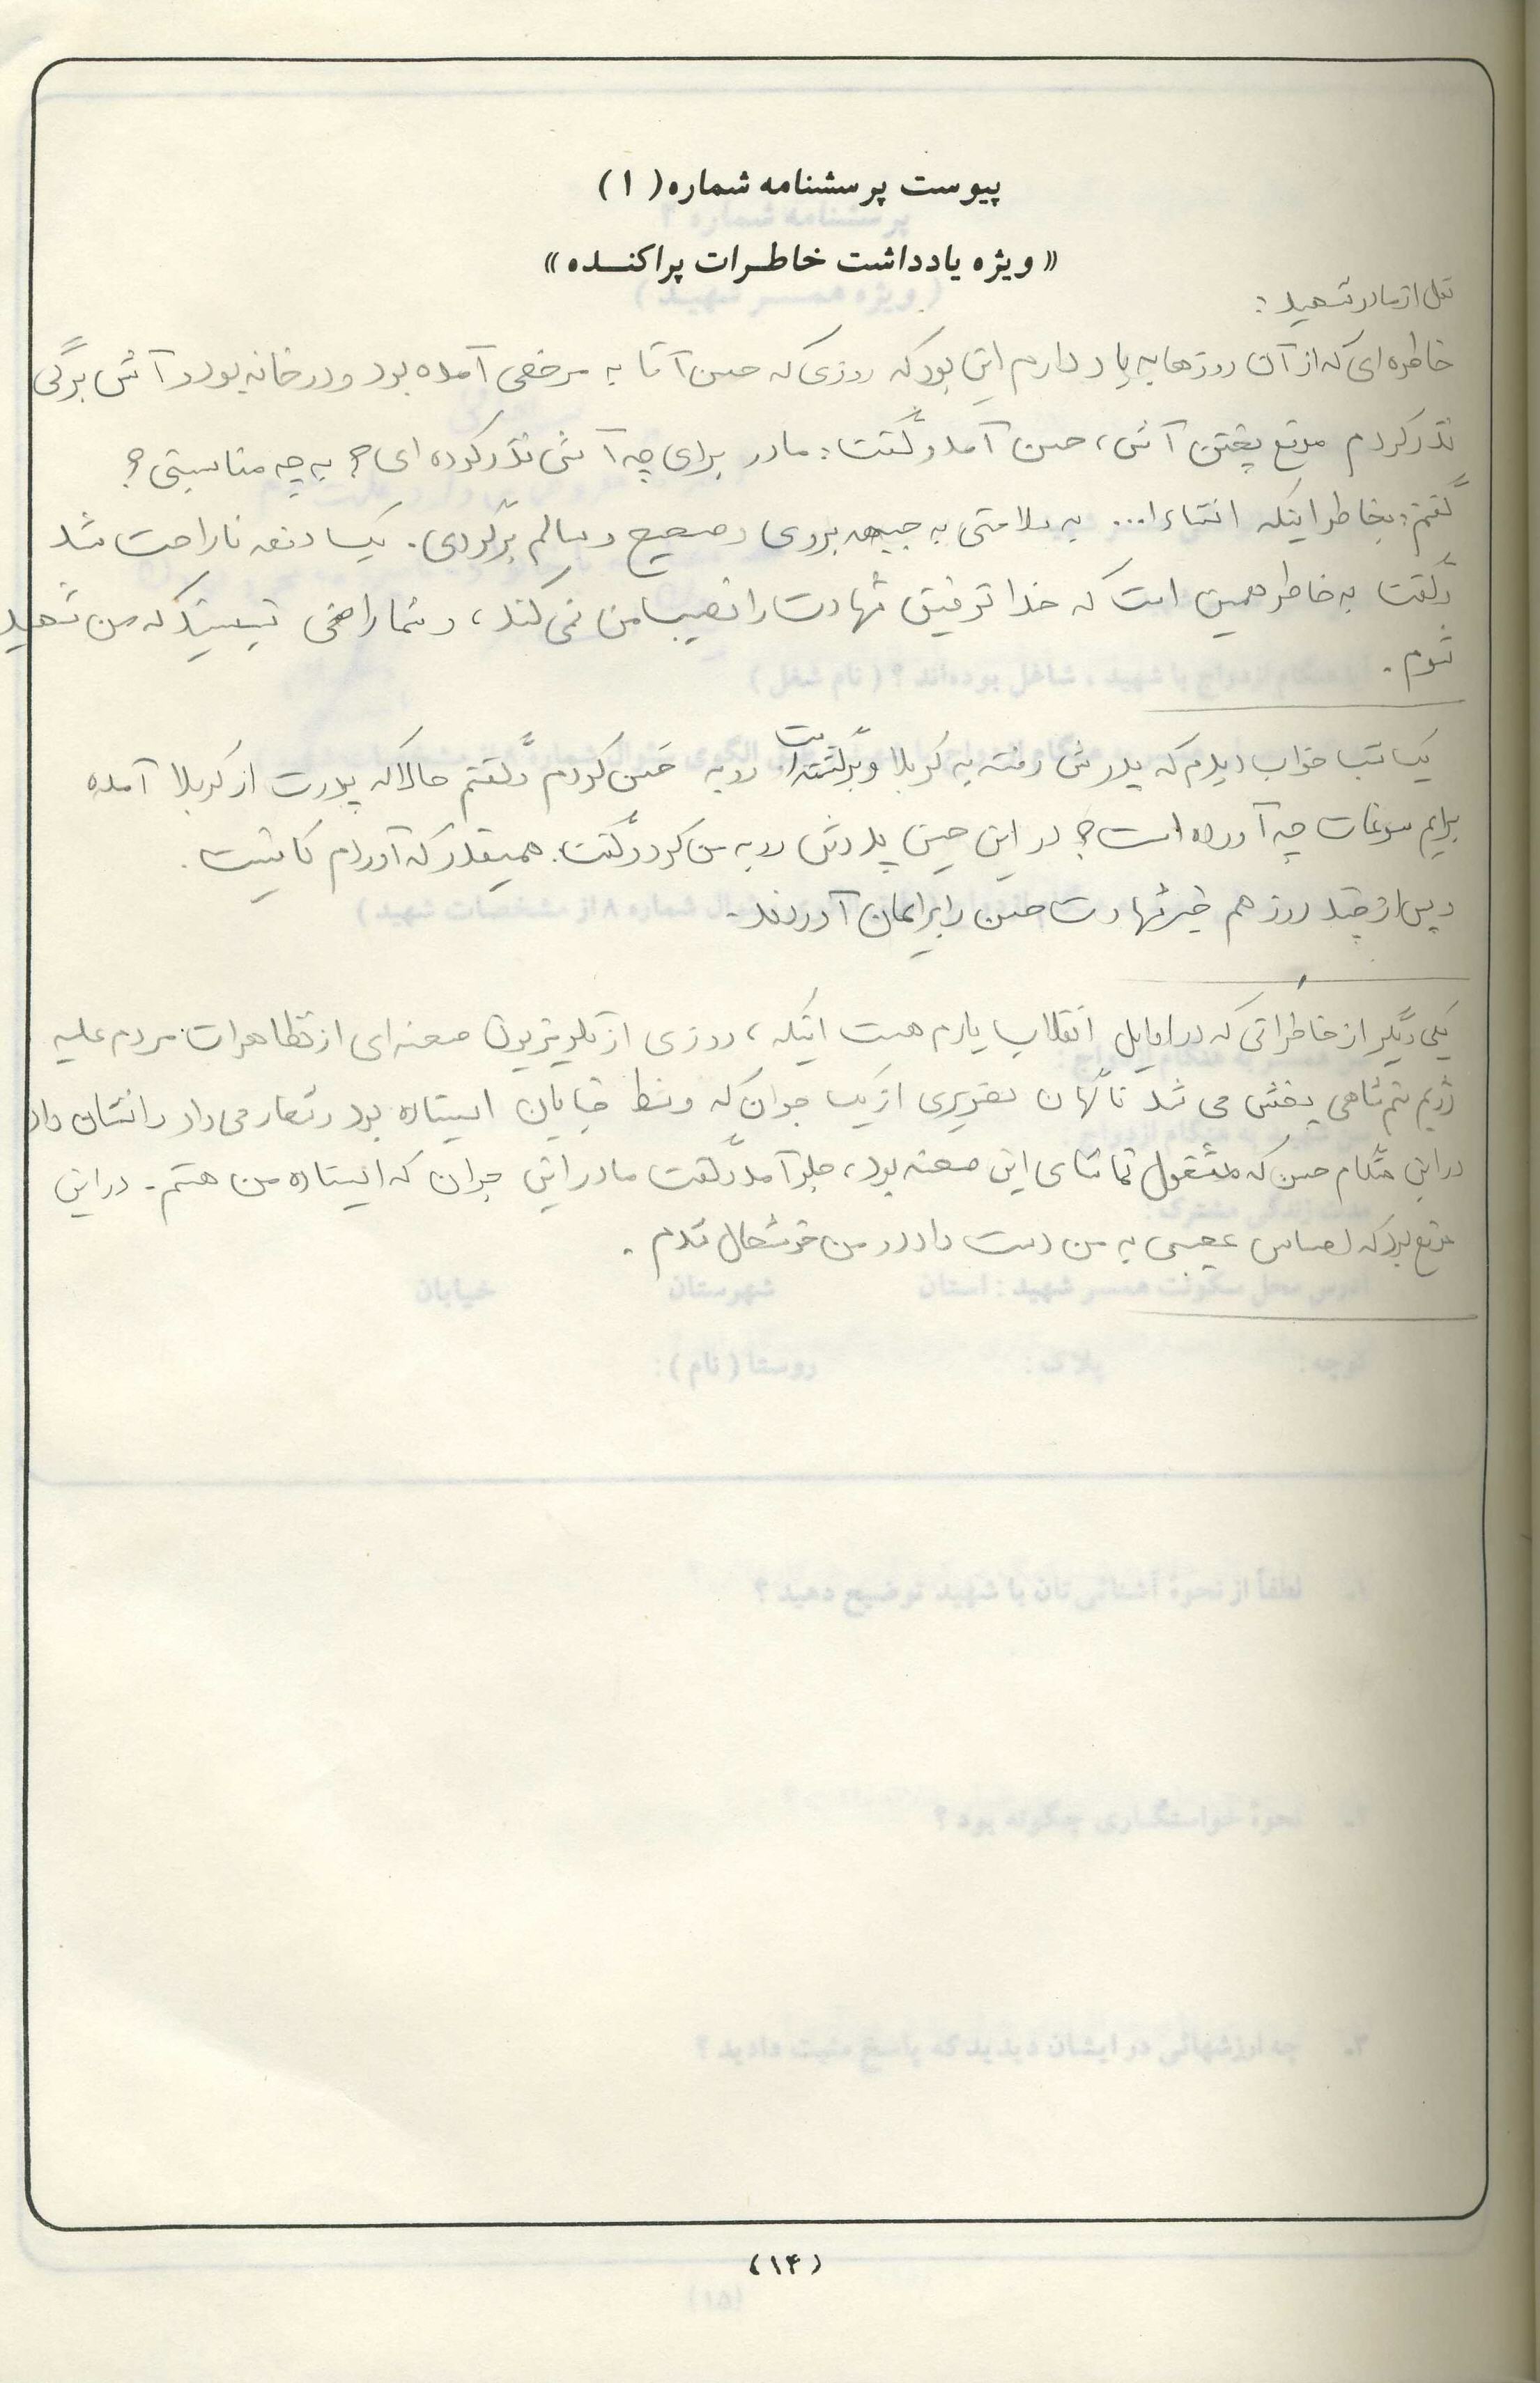 پیوست پرسشنامه شماره (۱)
«ویژه یادداشت خاطرات پراکنده»
نقل از مادر شهید :
خاطره ای که از آن روزها به یاد دارم این بود که روزی که حسن آقا به مرخصی آمده بود و در خانه بود و آش برگی
نذر کردم موقع پختن آش، حسن آمد و گفت: مادر برای چه آش نذر کرده ای؟ به چه مناسبتی؟
گفتم: بخاطر اینکه انشاءا... به سلامتی به جبهه بروی و صحیح و سالم برگردی. یک دفعه ناراحت شد
و گفت به خاطر همین است که خدا توفیق شهادت را نصیب من نمی کند، و شما راضی نیستید که من شهید
شوم.
یک شب خواب دیدم که پدرش رفته به کربلا و برگشته است رو به حسن کردم و گفتم حالا که پدرت از کربلا آمده
برایم سوغات چه آورده است؟ در این حین پدرش رو به من کرد و گفت. همینقدر که آوردم کافیست.
و پس از چند روز هم خبر شهادت حسن را برایمان آوردند.
یکی دیگر از خاطراتی که در اوایل انقلاب یادم هست اینکه، روزی از تلویزیون صحنه ای از تظاهرات مردم علیه
رژیم ستم شاهی پخش می شد ناگهان تصویری از یک جوان که وسط خیابان ایستاده بود و شعار می داد را نشان داد
در این هنگام حسن که مشغول تماشای این صحنه بود، جلو آمد و گفت مادر این جوان که ایستاده من هستم. در این
موقع بود که احساس عجیبی به من دست داد و من خوشحال شدم.
(۱۴)